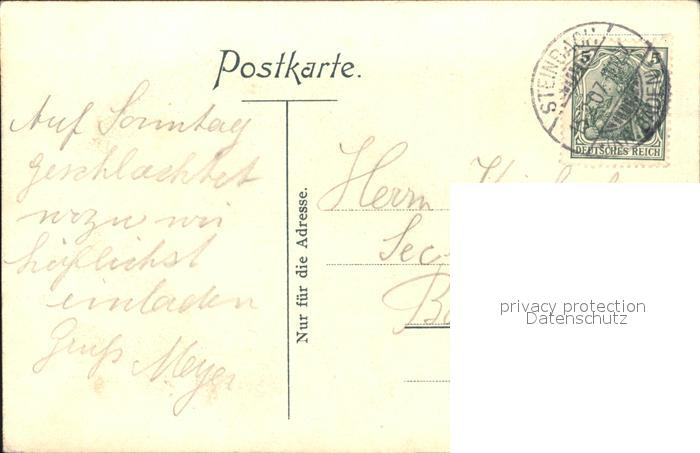 Postkarte.
Auf Sonntag
geschlachtet
wozu wir
höflichst
einladen
Gruß Meyer
Nur für die Adresse.
Herrn
Sec
STEINBACH
07
5
DEUTSCHES REICH
privacy protection
Datenschutz